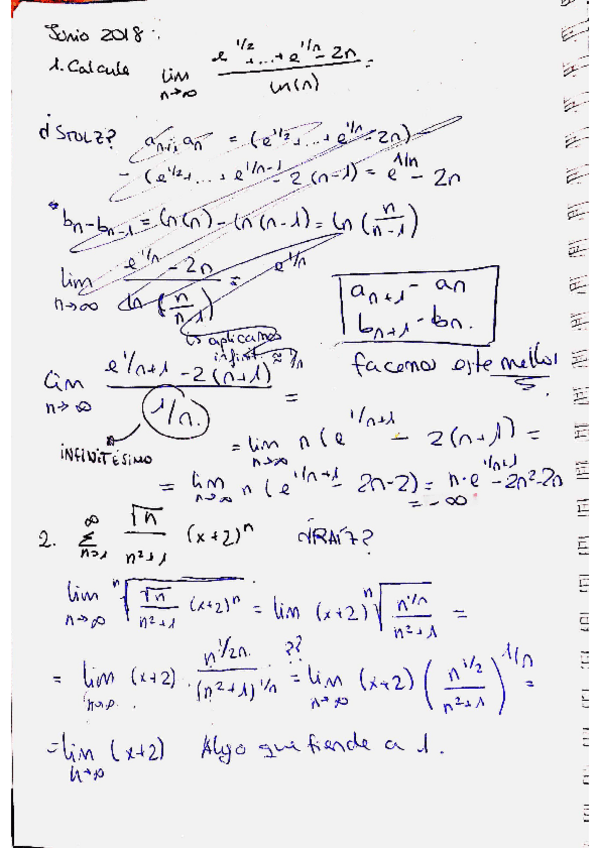 Junio 2018:
1. Calcule lim n→∞ (e^1/2 + ... + e^1/n - 2n) / ln(n) =
¿STOLZ? a_n+1, a_n = (e^1/2 + ... + e^1/n - 2n) -
- (e^1/2 + ... + e^1/n-1 - 2(n-1) = e^1/n - 2n
* b_n - b_n-1 = ln(n) - ln(n-1) = ln(n/n-1)
lim n→∞ (e^1/n - 2n) / ln(n/n-1) = e^1/n
a_n+1 - a_n
b_n+1 - b_n.
↳ aplicamos
infinit ≈ 1/n
facemos este mellor
lim n→∞ (e^1/n+1 - 2(n+1)) / 1/n. =
INFINITÉSIMO
= lim n→∞ n(e^1/n+1 - 2(n+1) =
= lim n→∞ n(e^1/n+1 - 2n-2) = n·e^1/n+1 - 2n² - 2n
= -∞
2. ∑ n=1 ∞ √n / n²+1 (x+2)^n ¿RAÍZ?
lim n→∞ n√(√n / n²+1 (x+2)^n) = lim (x+2) n√(n^1/n / n²+1) =
= lim n→∞ (x+2) · n^1/2n / (n²+1)^1/n =?? lim n→∞ (x+2) (n^1/2 / n²+1)^1/n =
= lim n→∞ (x+2) Algo que tiende a 1.